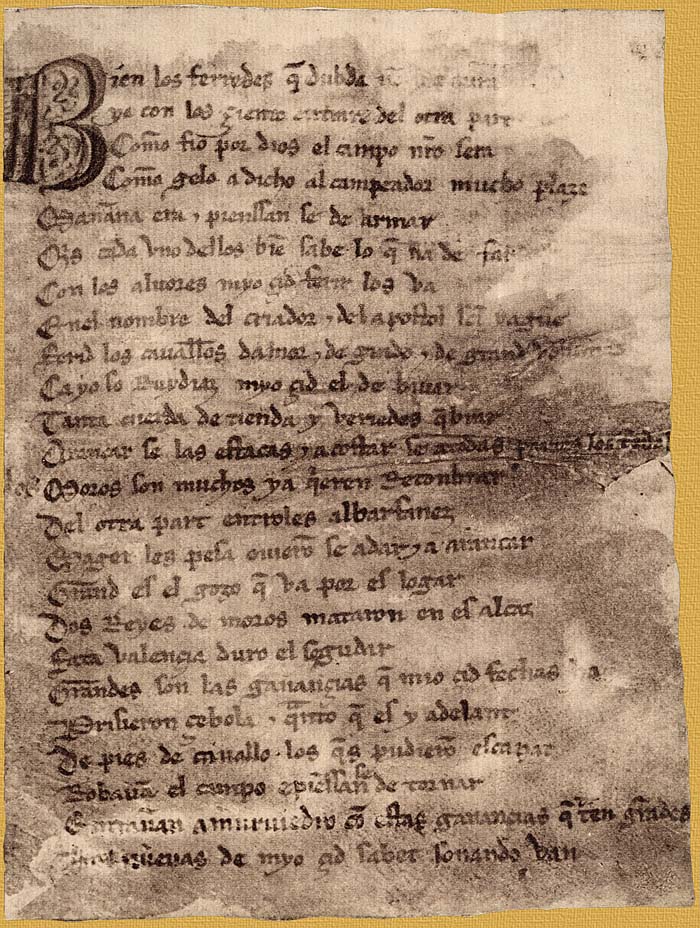 Bien los ferredes q̃ dubda nõ
yo con los çiento entrare del otra part
Como fio por dios el campo nr̃o sera
Como gelo a dicho al campeador mucho plaze
Mañana era ⁊ pienssan se de armar
Qis cada vno dellos biẽ sabe lo q̃ ha de far
Con los aluores myo çid ferir los va
Enel nombre del criador ⁊ del apostol
ferid los cauallos damor ⁊ de grado ⁊ de grand
Ca yo so Ruydiaz myo çid el de biuar
Tanta cuerda de tienda y veriedes q̃brar
Arancar se las estacas ⁊ acostar se a todas partes los tẽdales
Moros son muchos ya q̃eren Reconbrar
Del otra part entroles albarfanez
Mager les pesa ouierõ se adar ⁊ a arancar
Grand es el gozo q̃ va por es logar
Dos Reyes de moros mataron en es alcaz
fata valencia duro el segudar
Grandes son las ganançias q̃ mio çid fechas ha
Prisieron çebola ⁊ q̃nto q̃ es y adelant
De pies de cauallo los q̃s pudierõ escapar
Robauã el campo epiẽssan se de tornar
Entrauan a muruiedro cõ estas ganançias q̃ trẽ grãdes
nueuas de myo çid sabet sonando van